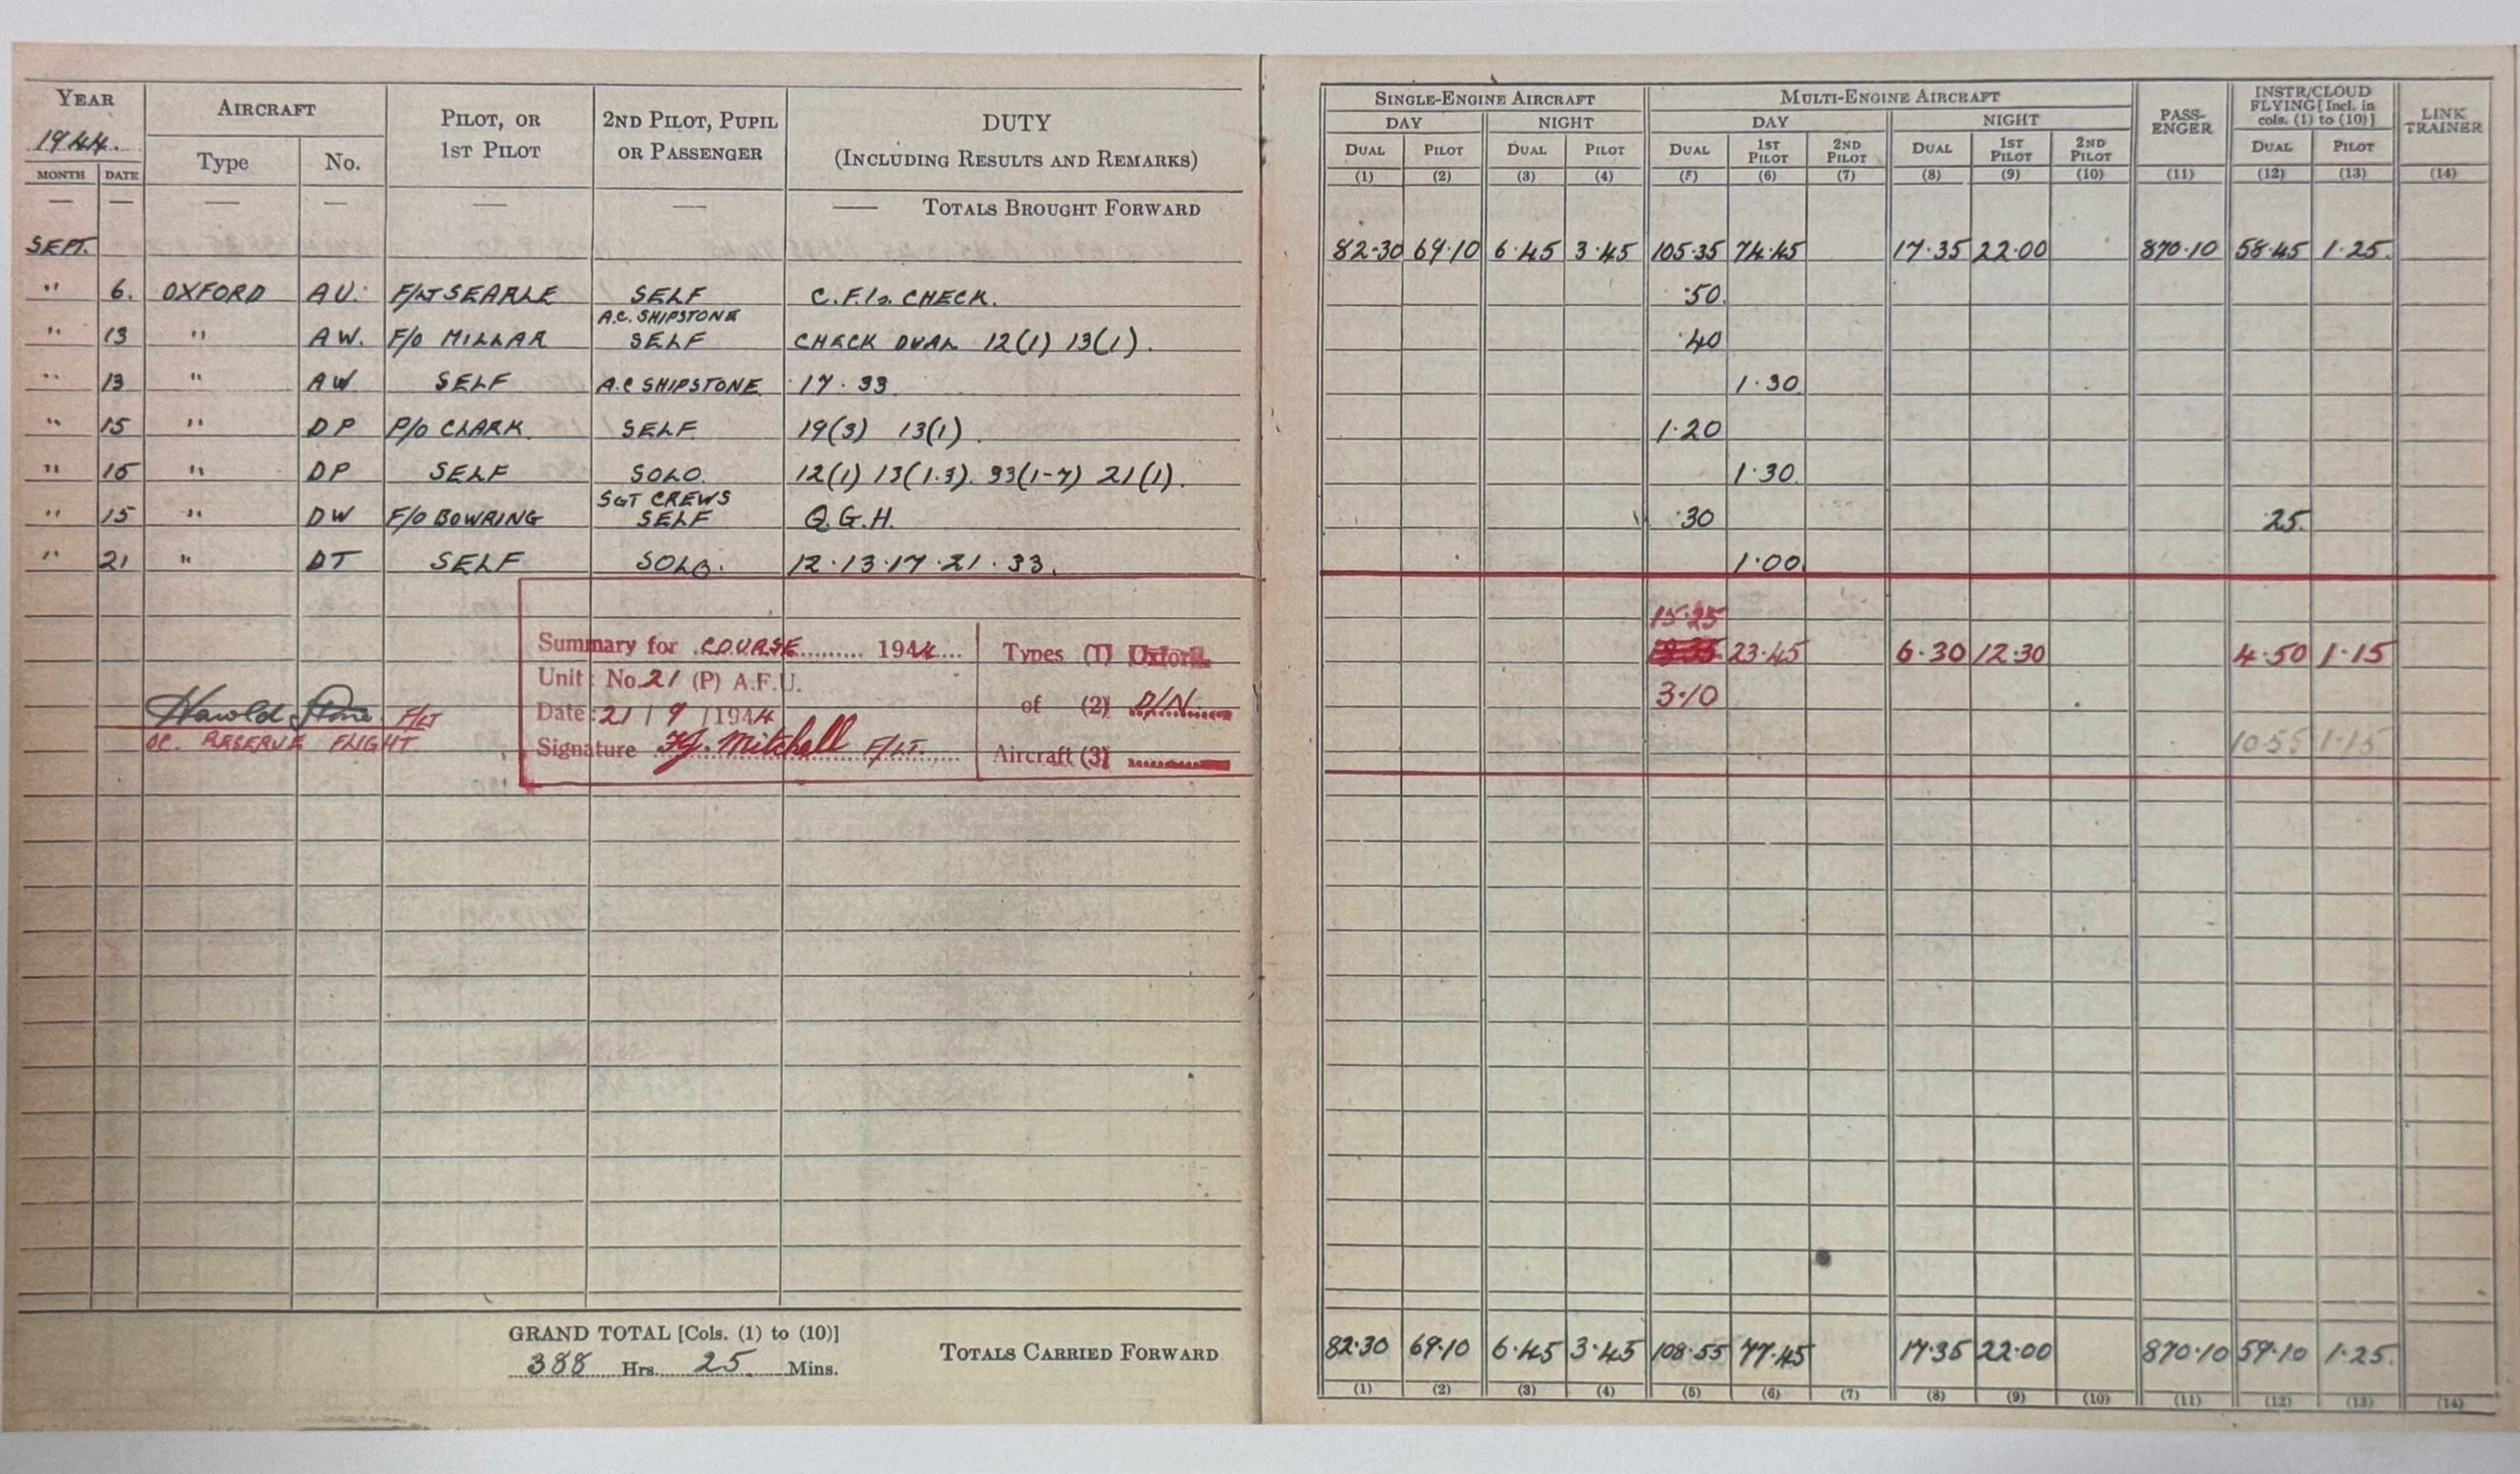 YEAR AIRCRAFT PILOT, OR 1ST PILOT 2ND PILOT, PUPIL OR PASSENGER DUTY (INCLUDING RESULTS AND REMARKS) SINGLE-ENGINE AIRCRAFT MULTI-ENGINE AIRCRAFT PASS-ENGER INSTR/CLOUD FLYING [Incl. in cols. (1) to (10)] LINK TRAINER
1944. Type No. DAY NIGHT DAY NIGHT
MONTH DATE DUAL PILOT DUAL PILOT DUAL 1ST PILOT 2ND PILOT DUAL 1ST PILOT 2ND PILOT DUAL PILOT
(1) (2) (3) (4) (5) (6) (7) (8) (9) (10) (11) (12) (13) (14)
— — — — — — — TOTALS BROUGHT FORWARD
SEPT. 82·30 69·10 6·45 3·45 105·35 74·45 17·35 22·00 870·10 58·45 1·25.
" 6. OXFORD A U. F/LT SEARLE SELF C.F.I's. CHECK. ·50.
A.C. SHIPSTONE
" 13 " A W. F/O MILLAR SELF CHECK DUAL 12(1) 13(1). ·40
" 13 " A W SELF A.C SHIPSTONE 17·33 1·30.
" 15 " D P P/O CLARK. SELF 19(3) 13(1). 1·20
" 15 " D P SELF SOLO. 12(1) 13(1.3). 33(1-7) 21(1). 1·30.
SGT CREWS
" 15 " D W F/O BOWRING SELF Q.G.H. ·30 ·25.
" 21 " D T SELF SOLO. 12·13·17·21·33. 1·00
15·25
Summary for COURSE 1944 Types (1) Oxford. 23·45 6·30 12·30 4·50 1·15
Unit: No. 21 (P) A.F.U.
of (2) D/N 3·10
Harold F/LT Date: 21 / 9 / 1944
OC. RESERVE FLIGHT Signature Mitchell F/LT. Aircraft (3) 10·55 1·15
GRAND TOTAL [Cols. (1) to (10)]
388 Hrs. 25 Mins. TOTALS CARRIED FORWARD 82·30 69·10 6·45 3·45 108·55 77·45 17·35 22·00 870·10 59·10 1·25.
(1) (2) (3) (4) (5) (6) (7) (8) (9) (10) (11) (12) (13) (14)